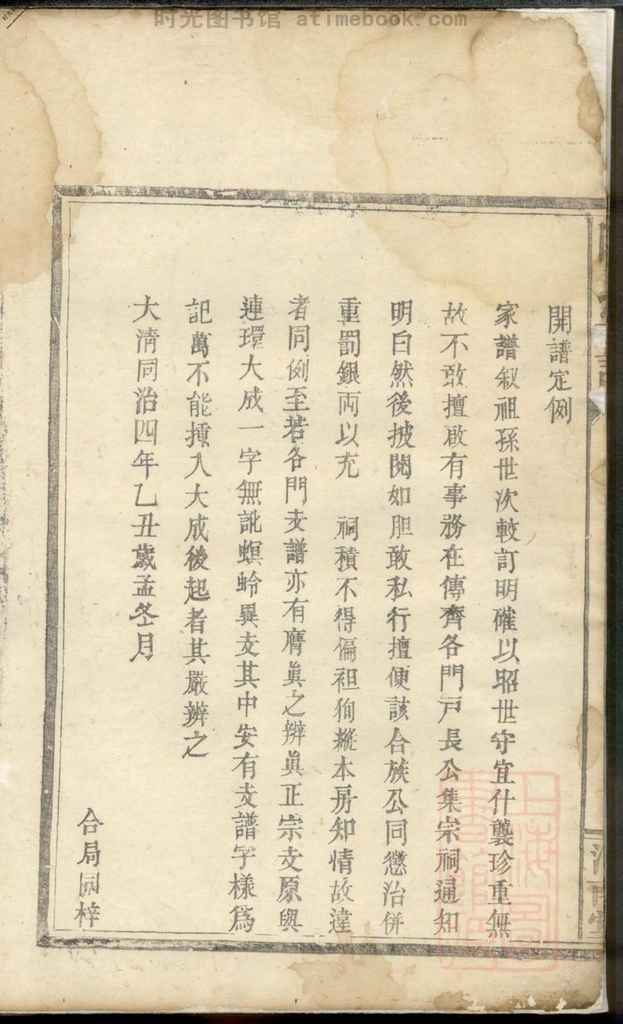 时光图书馆 atimebook.com
開譜定例
家譜叙祖孫世次較訂明確以昭世守宜什襲珍重無
故不敢擅啟有事務在傳齊各門戸長公集宗祠通知
明白然後披閱如胆敢私行擅便該合族公同懲治併
重罰銀両以充 祠積不得偏袒狥縱本房知情故違
者同例至若各門支譜亦有膺眞之辨眞正宗支原與
連環大成一字無訛螟蛉異支其中安有支譜字樣為
記萬不能攙入大成後起者其嚴辨之
大清同治四年乙丑歲孟冬月
合局同梓